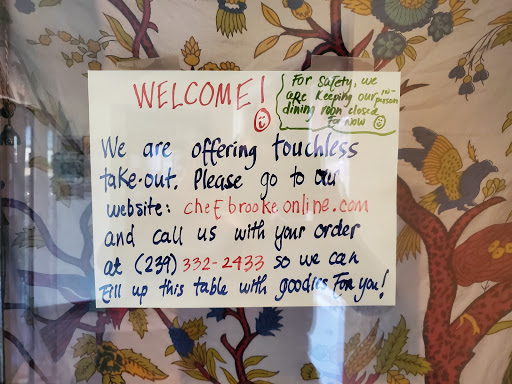 WELCOME!
For Safety, we
are keeping our in-person
dining room closed
For now
We are offering touchless
take-out. Please go to our
website: chefbrookeonline.com
and call us with your order
at (239) 332-2433 so we can
Fill up this table with goodies For you!